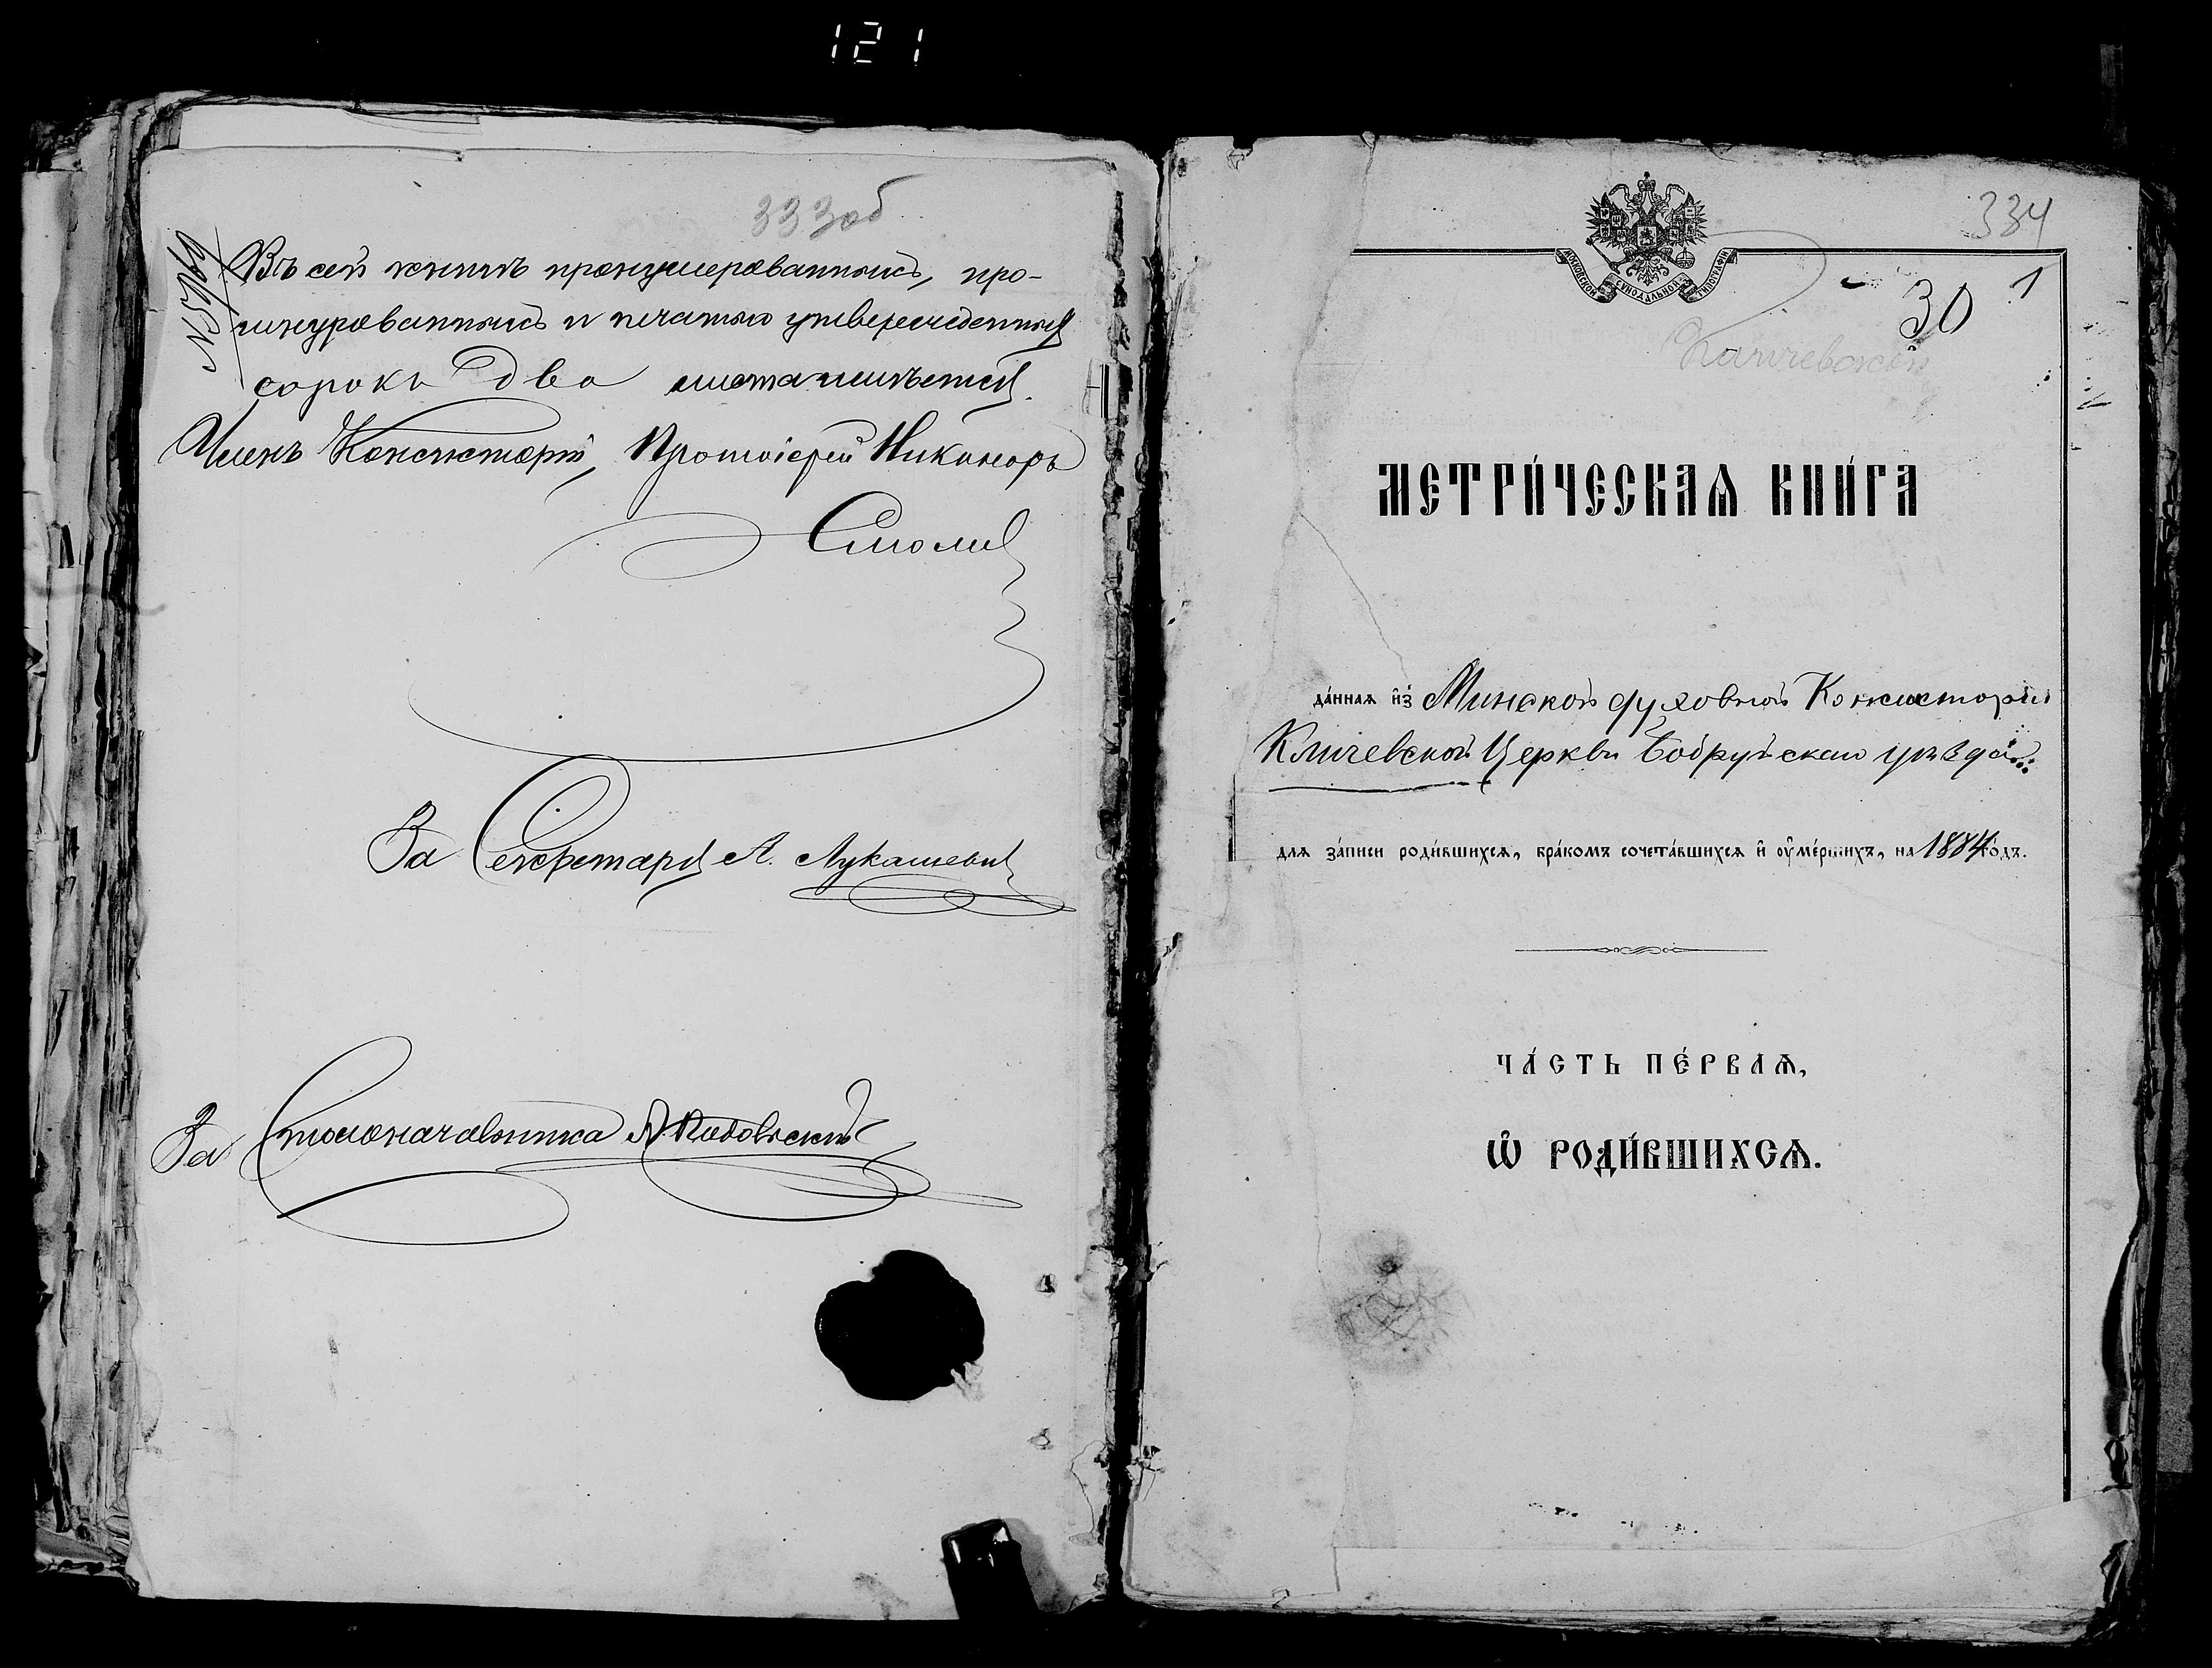 121
333об
№5769
Въ сей книгѣ пронумерованныхъ, про-
шнурованныхъ и печатью утвержденныхъ
сорокъ два листа имѣется.
Членъ Консисторіи, Протоіерей Никаноръ
Смоличъ
За Секретаря А. Лукашевичъ
За Столоначальника
334
МОСКОВСКОЙ СѴНОДАЛЬНОЙ ТИПОГРАФІИ
30 1
Кличевской
МЕТРИ́ЧЕСКАѦ КНИ́ГА
да́ннаѧ и҆з̾ Минской духовной Консисторіи
Кличевской Церкви Бобруйскаго уѣзда
для за́писи роди́вшихсѧ, бра́комъ сочета́вшихсѧ и҆ оу҆ме́ршихъ, на 1884 го́дъ.
ЧА́СТЬ ПЕ́РВАѦ,
Ѡ҆ РОДИ́ВШИХСѦ.